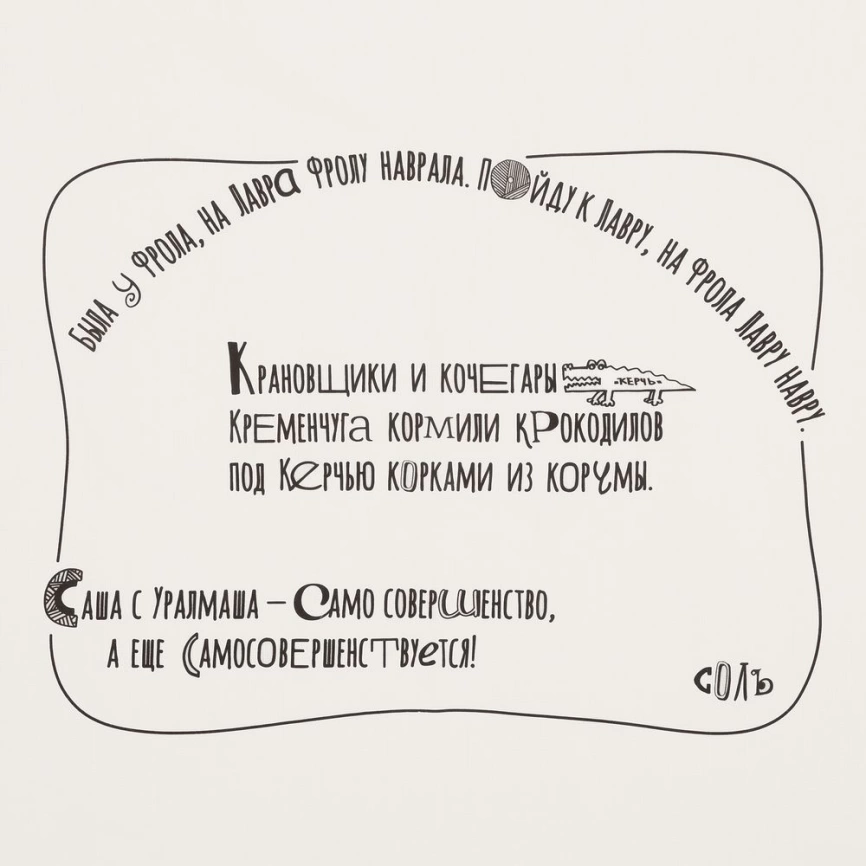 Была у Фрола, на Лавра Фролу наврала. Пойду к Лавру, на Фрола Лавру навру.
Крановщики и кочегары
«КЕРЧЬ»
Кременчуга кормили крокодилов
под Керчью корками из корчмы.
Саша с Уралмаша – Само совершенство,
а еще Самосовершенствуется!
СОЛЪ